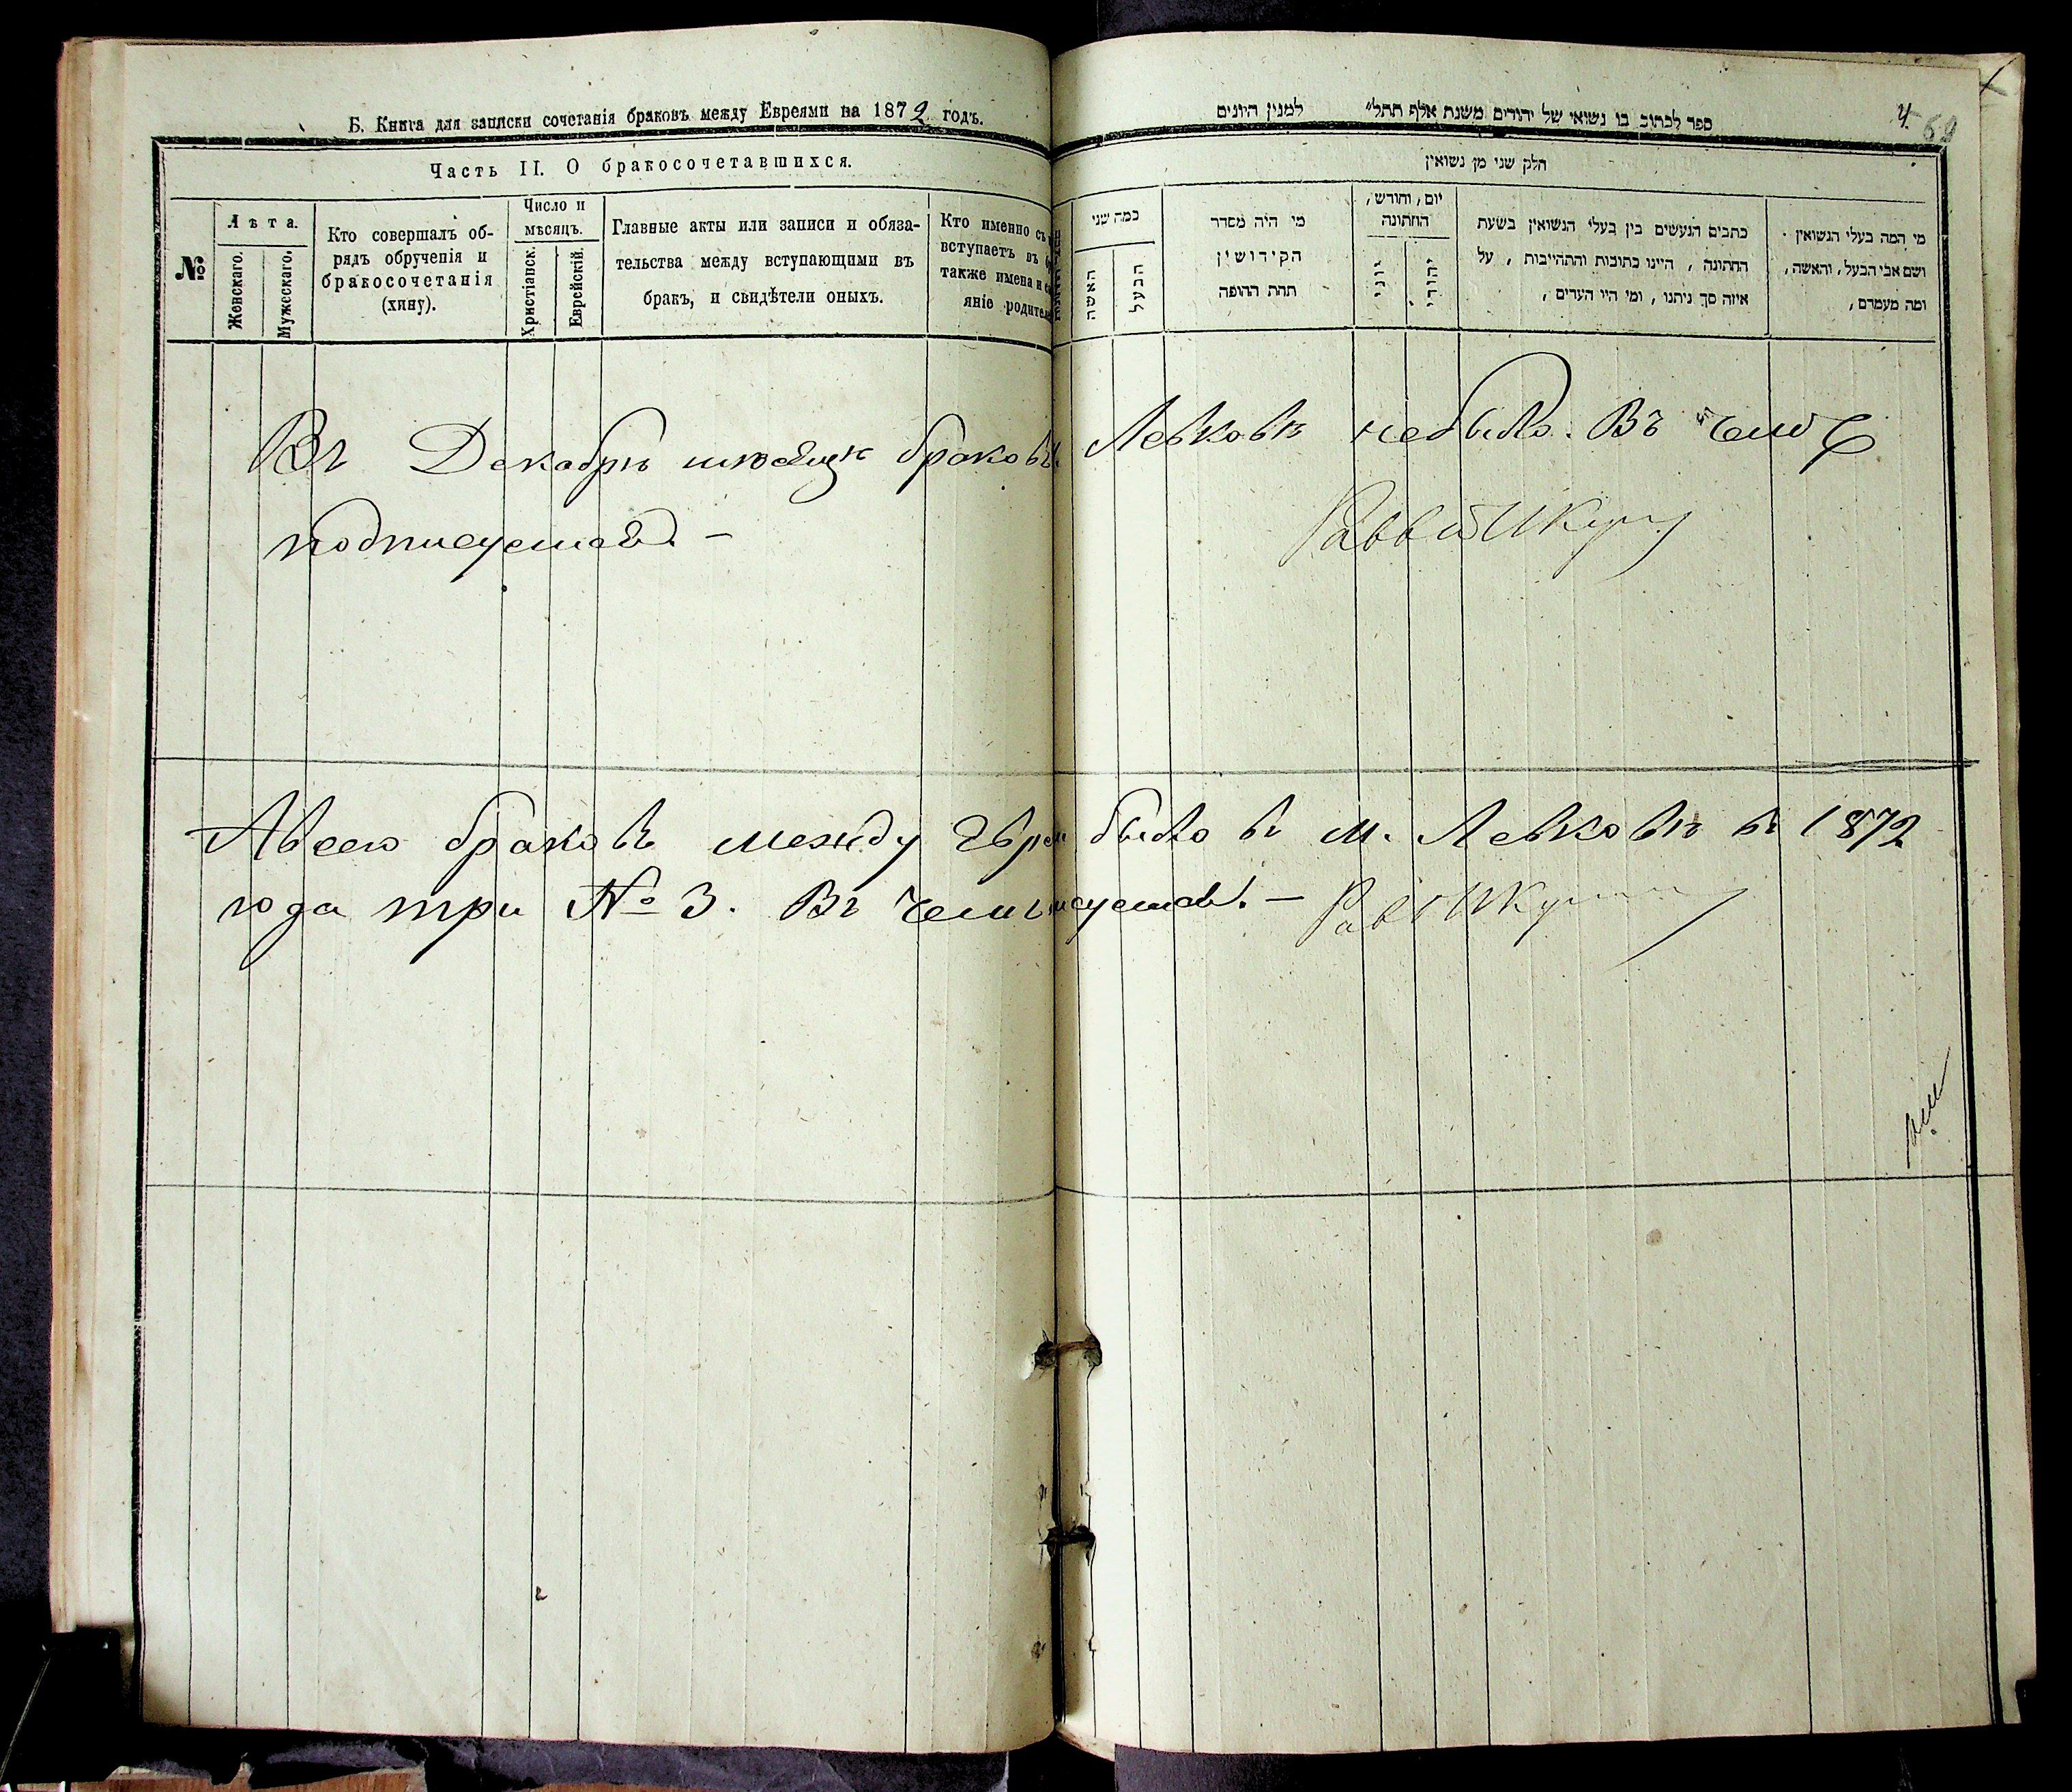 Б. Книга для записки сочетанія браковъ между Евреями на 1872 годъ.
Часть II. О бракосочетавшихся.
№
Лѣта.
Женскаго.
Мужескаго.
Кто совершалъ об-
рядъ обрученія и
бракосочетанія
(хину).
Число и
мѣсяцъ.
Христіанск.
Еврейскій.
Главные акты или записи и обяза-
тельства между вступающими въ
бракъ, и свидѣтели оныхъ.
Кто именно съ
вступаетъ въ
также имена и
яніе родител
ספר לכתוב בו נשואי של יהודים משנת אלף תתל״ למנין היונים
4. 69
חלק שני מן נשואין
כמה שני
האשה
הבעל
מי היה מסדר
הקידושין
תחת החופה
יום, וחודש,
החתונה
יוני
יהודי
כתבים הנעשים בין בעלי הנשואין בשעת
החתונה, היינו כתובות והתחייבות, על
איזה סך ניתנו, ומי היו העדים,
מי המה בעלי הנשואין
ושם אבי הבעל, והאשה,
ומה מעמדם,
Въ Декабрѣ мѣсяцѣ браковъ Левковѣ небыло. Въ чемъ
подписуемся. –
Раввинъ
Авсего браковъ между Евре было въ м. Левковѣ въ 1872
года три № 3. Въ чемъ суемся. –